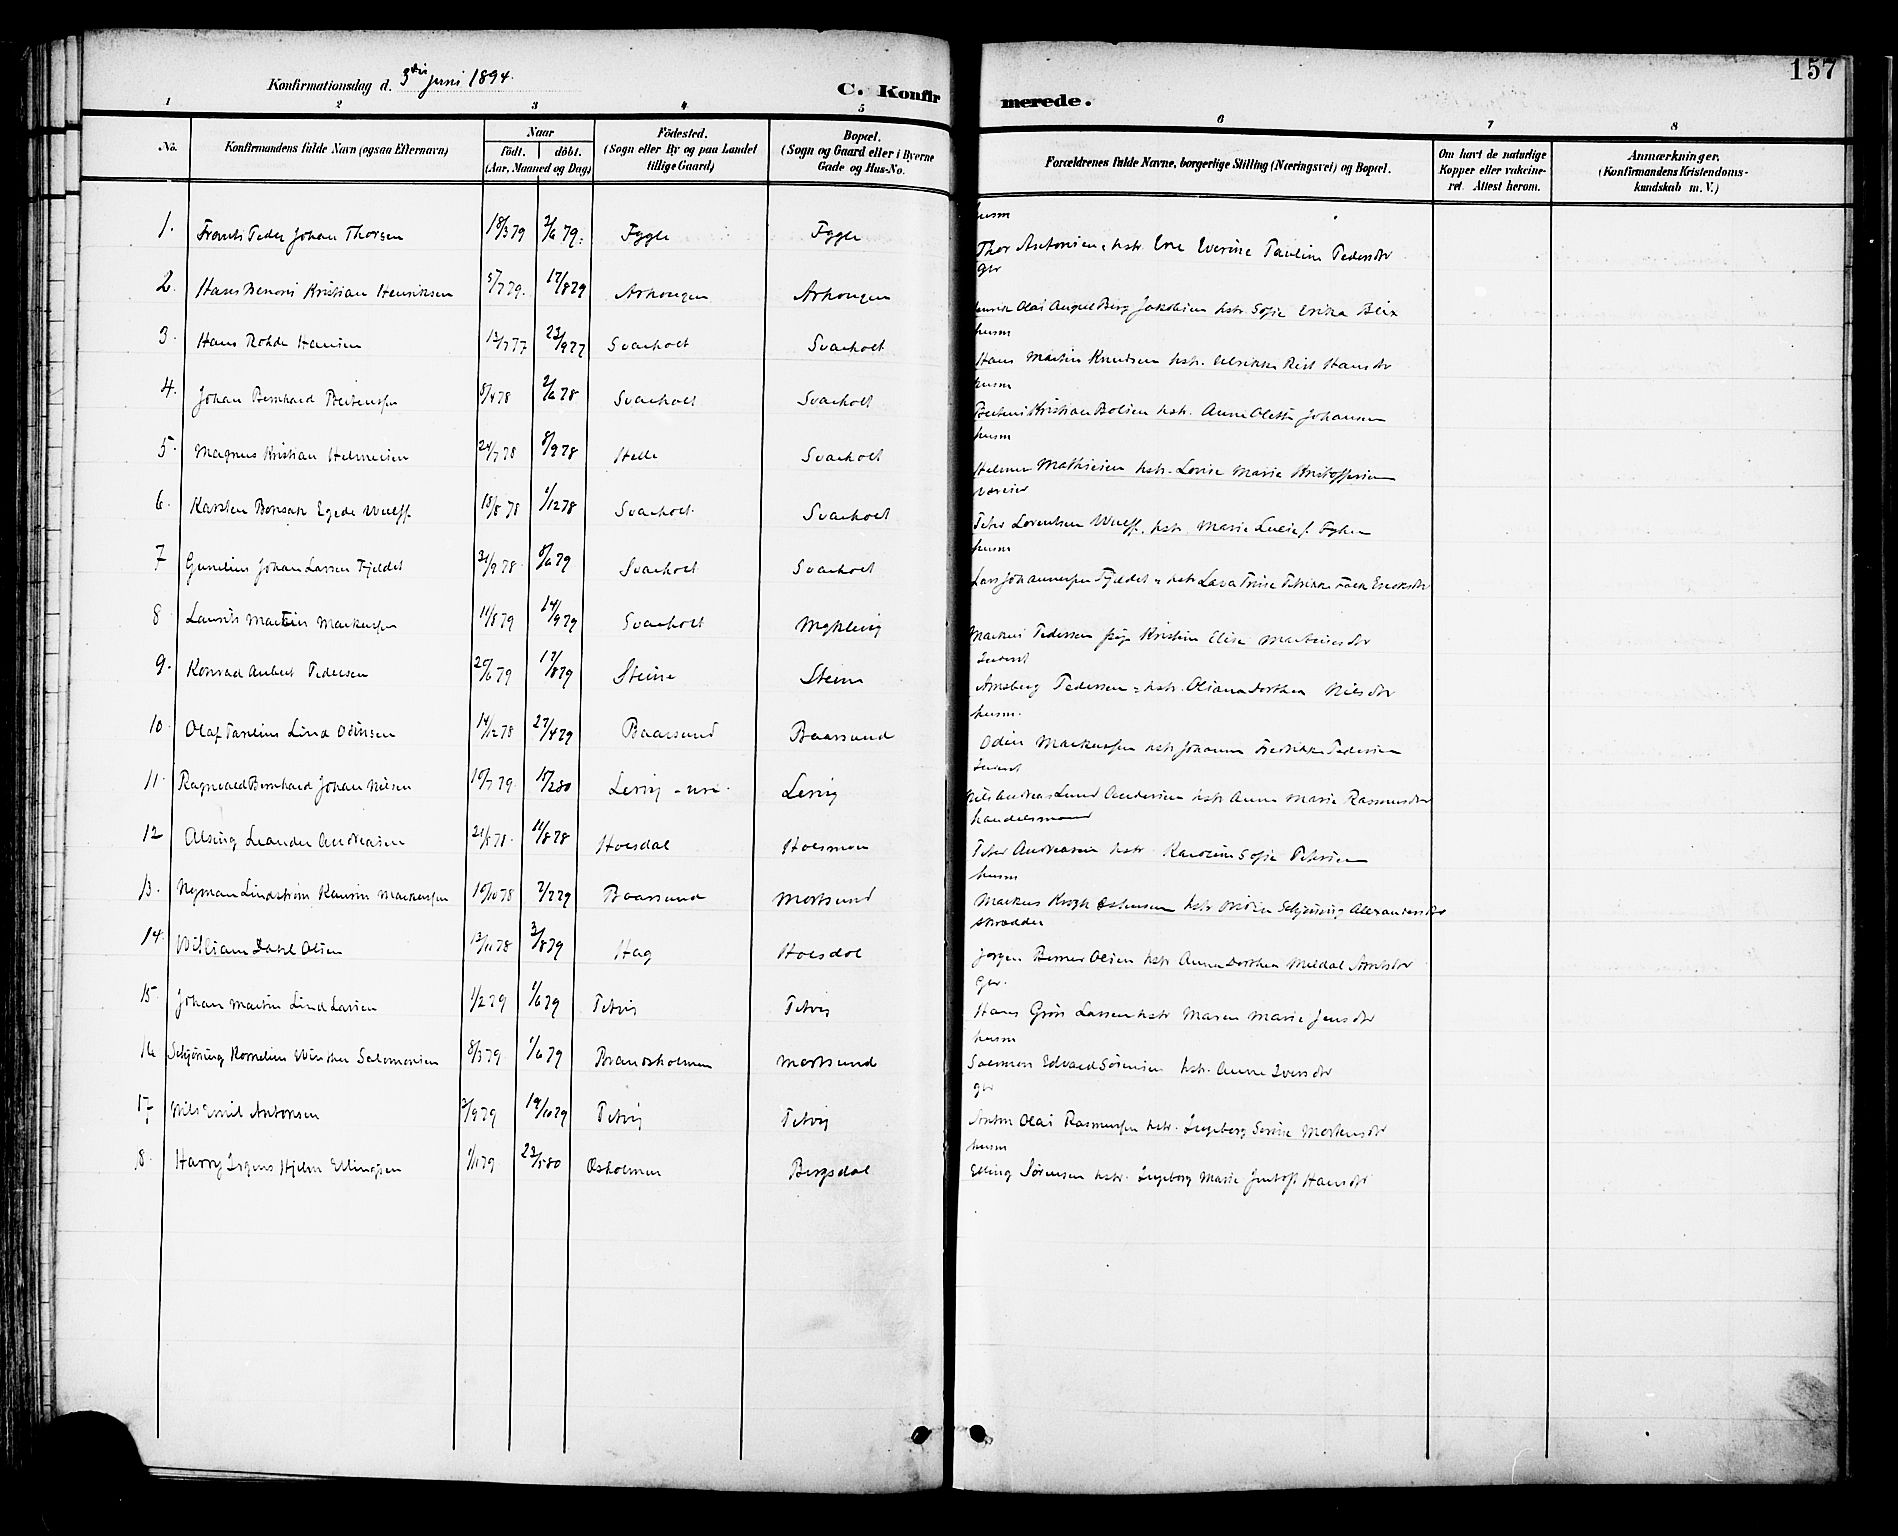 157
Konfirmationsdag d. 3die juni 1894.
C. Konfirmerede.
1 2 3 4 5 6 7 8
No.
Konfirmandens fulde Navn (ogsaa Efternavn)
Naar
födt. döbt.
(Aar, Maaned og Dag)
Födested.
(Sogn eller By og paa Landet
tillige Gaard)
Bopæl.
(Sogn og Gaard eller i Byerne
Gade og Hus-No.
Forældrenes fulde Navne, borgerlige Stilling (Næringsvei) og Bopæl.
Om havt de naturlige
Kopper eller vakcine-
ret. Attest herom.
Anmærkninger.
(Konfirmandens Kristendoms-
kundskab m. V.)
husm
1. Frants Peder Johan Thorsen 18/3 79 2/6 79. Fygle Fygle Thor Antonsen, hstr. Everine Pauline Pedersdtr
ger
2. Hans Benoni Kristian Henriksen 5/7 79. 17/8 79 Henrik Olai August Berg Jakobsen hstr. Sofie Erika Blix
husm
3. Hans Rohde Hansen 77 23/9 77 Svarholt Svarholt Hans Martin Knudsen hstr. Ulrikke Hansdtr
husm
4. Johan Bernhard Berntsen 8/4 78 2/6 78 Svarholt Svarholt Kristian hstr. Anne Oletta Johansen
husm
5. Magnus Kristian Helmersen 24/7 78 8/9 78 Helle Svarholt Helmer Mathisen hstr. Lovise Marie Kristoffersen
6. Karsten Egede Wulff 18/8 78 1/12 78 Svarholt Svarholt Peter Lorentsen Wulff, hstr. Marie
husm
7 Gunelius Johan Larsen Fjeldet 21/9 78. 8/6 79 Svarholt Svarholt Lars Johannessen Fjeldet hstr
8 Laurits Martin Markussen 11/8 79 14/9 79 Svarholt Myklevig Markus Pedersen pige Kristine Elise Martinusdtr
9. Konrad Anbert Pedersen 20/6 79 17/8 79 Steine Steine Amsberg Pedersen hstr. Oliana Dorthea Nilsdtr
husm.
10. Olaf Parelius Lind Odinsen 14/12 78 27/4 79 Baarsund Baarsund Odin Markussen hstr Johanna Fredrikke Pedersen
11. Ragnvald Bernhard Johan Nilsen 10/7 79. 15/2 80 Nils Andreas Lund Andersen hstr Anne Marie Rasmusdtr
handelsmand
12 Leander Andreasen 21/5 78. 11/8 78 Holsdal Holsmon Peter Andreassen hstr. Karoline Sofie Petersen
husm
13. Nyman Lindstrøm Markussen 10/10 78 2/2 79 Baarsund Mortsund Markus Krogh hstr Schjøning Alexandersdtr
skrædder
14. William Dahl Olsen 13/11 78 3/8 79 Hag Holsdal Jørgen Berner Olsen hstr Anne Dorthea Meldal Arntsdtr
ger.
15. Johan Martin Lind Larsen 1/2 79 1/6 79 Petvig Petvig Hans Grön Larsen hstr Maren Marie Jensdtr
husm
16 Schjöning Kornelius Winther Salomonsen 8/3 79. 1/6 79 Brandsholmen Mortsund Salomon Edvard Sørensen hstr. Anne Iversdtr
ger
17 Nils Emil Antonsen 2/9 79 19/10 79 Petvig Petvig Anton Olai Rasmussen hstr. Ingeborg Serine Mortensdtr
husm
18. Harry Irgens Hjelm Ellingsen 1/11 79 23/5 80 Osholmen Bergsdal Elling Sørensen hstr. Ingeborg Marie Hansdtr